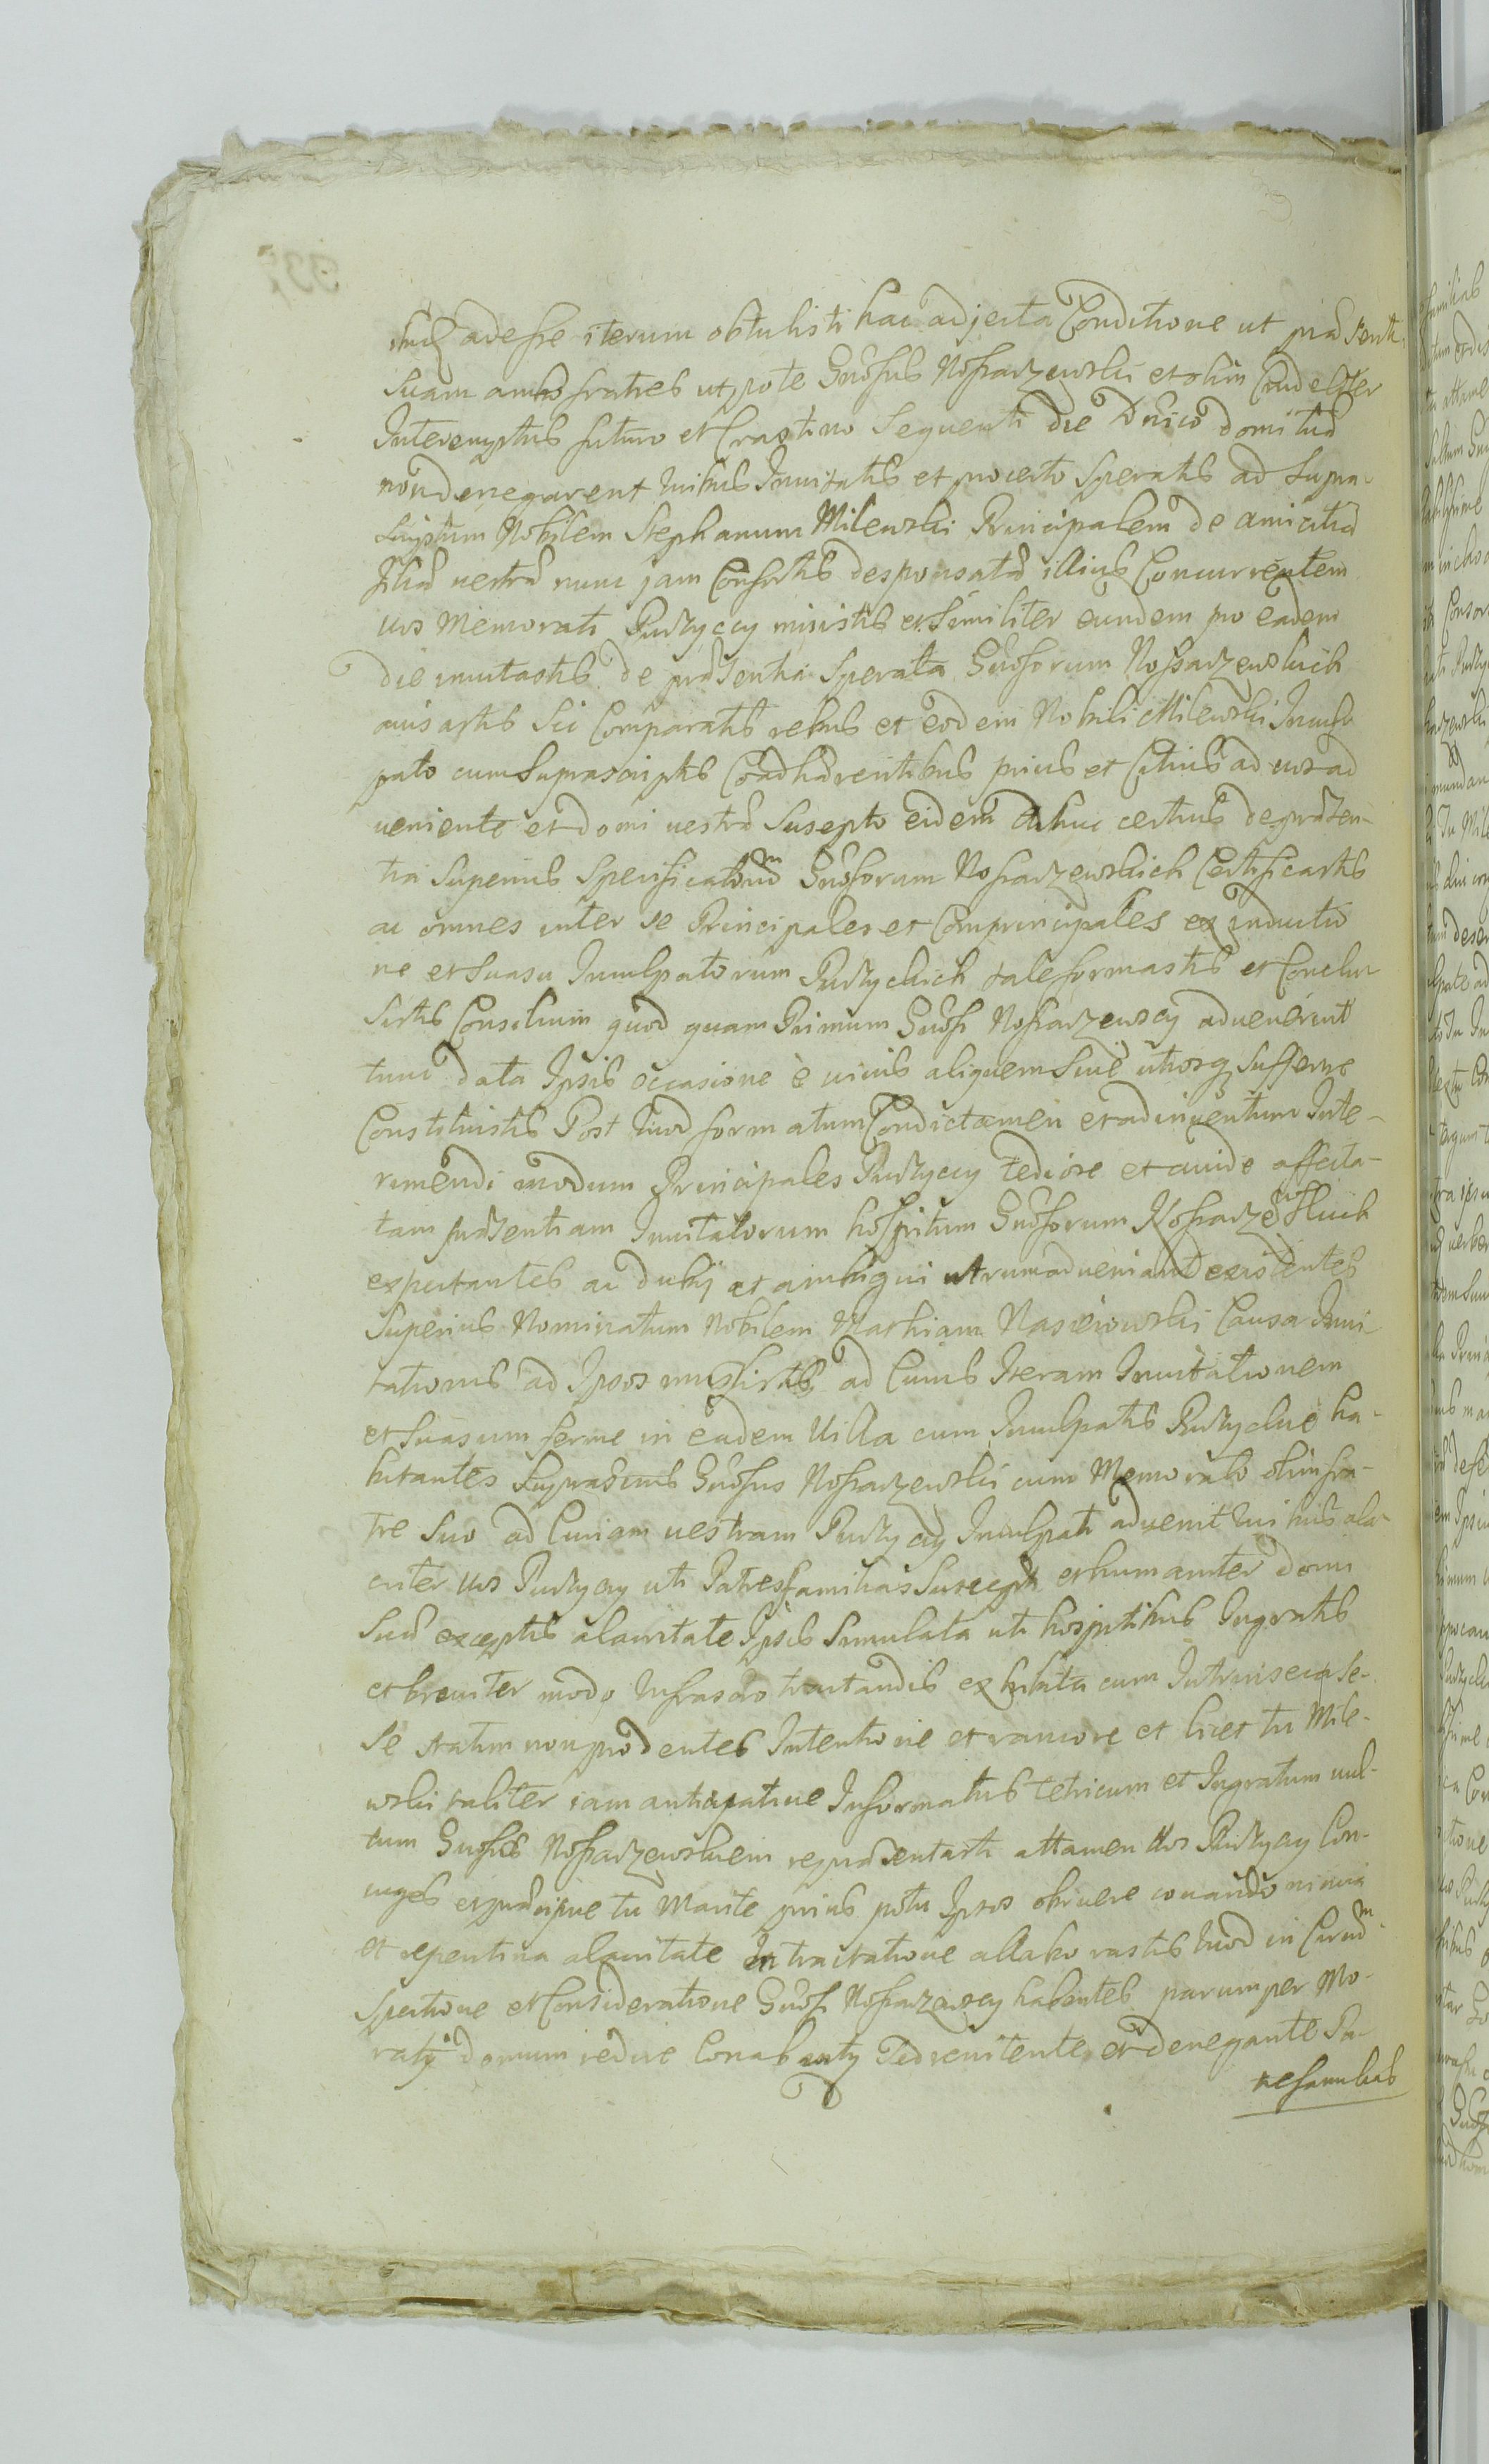 adesse iterum obtulisti hac adjecta Conditione ut præsenti
suam ambo fratres utpote Gnosus Nossarzewski et olim Crudelter
Interemptus futuro et Crastino sequenti die Dnico domi tuæ
non denegarent quibus Invitatis et pro certo speratis ad supra
scriptum Nobilem Stephanum Milewski Principalem de amicitia
filiæ vestræ nunc jam Consortis desponsatæ illius Concurrentem
vos Memorati Pudzyccy misistis et similiter eundem pro eadem
die invitastis de præsentia sperata Gnosorum Nossarzewskich
avisastis Sic Comparatis rebus et eodem Nobili Milewski Inculpato
pato cum suprascriptis Coadhærentibus prius et Citius ad vos ad
veniente et domi vestræ suscepto eidem adhuc certius de præsen-
tia superius specificatorum Gnosorum Nossarzewskich Certificastis
ac omnes inter se Principales et Comprincipales ex inductio
ne et suasu Inculpatorum Pudzyckich tale formastis et Conclu
sistis Consilium quod quam Primum Gnosi Nossarzewscy advenerint
tunc data Ipsis occasione è vivis aliquem sive utrosq sufferre
Constituistis Post quod formatum Condictamen et adinventum Inte-
rimendi modum Principales Pudzyccy tediose et avide affecta-
tam præsentiam Invitatorum hospitum Gnosorum Nossarzewskich
expectantes ac dubij et ambigui utrum adveniant existentes
Superius Nominatum Nobilem Mathiam Nasierowski Causa Invi
tationis ad Ipsos misistis ad Cuius Iteram Invitationem
et suasum ferme in eadem Villa cum Inculpatis Pudzyckie ha-
bitantes Supradictus Gnosus Nossarzewski cum Memorato olim fra-
tre suo ad Curiam vestram Pudzyccy Inculpati advenit quibus ala
criter vos Pudzyccy uti Patresfamilias susceptis et humaniter domi
suæ exceptis alacritate Ipsis simulata uti hospitibus Ingratis
et breviter modo Infrascto tractandis exhibita cum Intrinseca se
se statim non prodentes Intentione et rancore et licet tu Mile-
wski taliter iam anticipative Informatus tetricum et Ingratum vul-
tum Gnosis Nossarzewskiem repræsentasti attamen Vos Pudzyccy Con-
iuges et præcipue tu Marite prius potu Ipsos obruere conando nimia
et repentina alacritate In tractatione allaborastis quod in Circum
spectione et Consideratione Gnosi Nossarzewscy habentes parumper Mo-
rati domum redire Conabantur Sed renitente et denegante Pa-
trefamilias